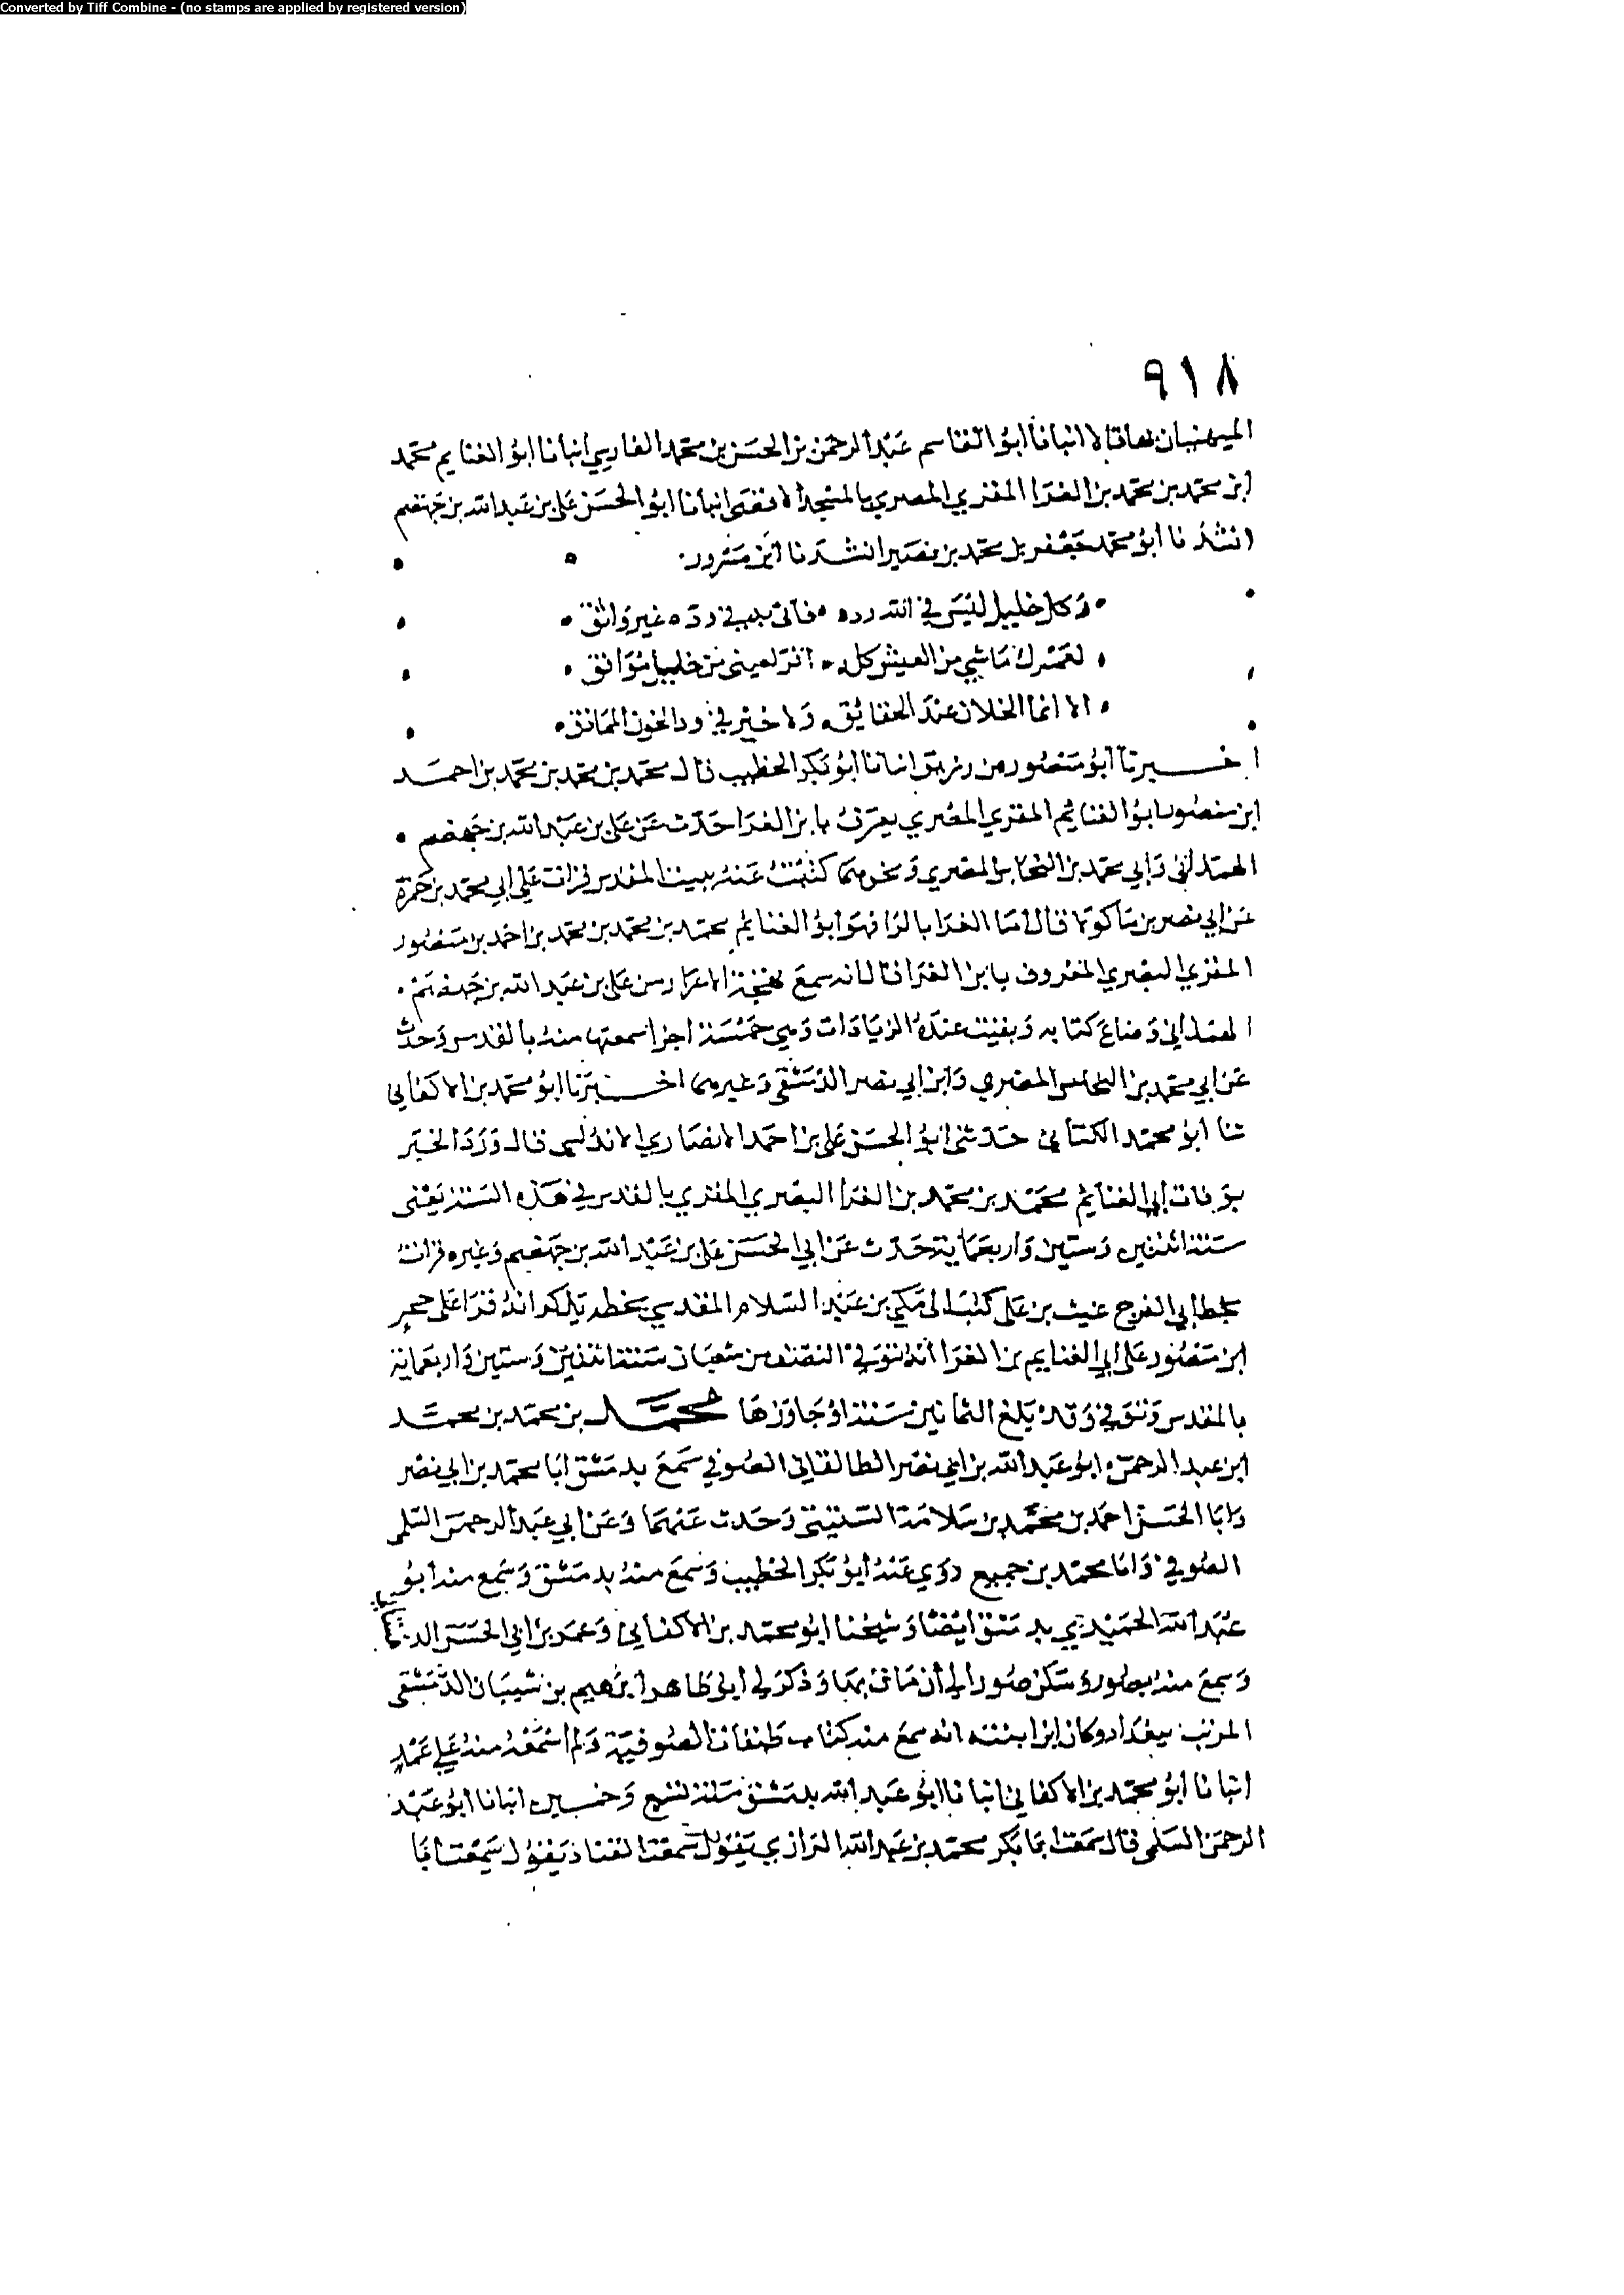 Converted by Tiff Combine - (no stamps are applied by registered version)
٩١٨
الميهنيان بها قالا انبانا ابو القاسم عبد الرحمن بن الحسن بن محمد الفارسي انبانا ابو الغنايم محمد
ابن محمد بن محمد بن الغرا المقري المصري بالمسجد الاقصى انبانا ابو الحسن علي بن عبد الله بن جهضم
انشدنا ابو محمد جعفر بن محمد بن نصير انشدنا ابن مسرور
وكل خليل ليس في الله وده فاني به في وده غير واثق
لعمرك ما شي من العيش كله اقر لعيني من خليل موافق
الا انما الخلان عند الحقايق ولا خير في ود الخون المماذق
اخبرنا ابو منصور بن زريق انبانا ابو بكر الخطيب قال محمد بن محمد بن محمد بن احمد
ابن منصور ابو الغنايم المقري المصري يعرف بابن الغرا حدث عن علي بن عبد الله بن جهضم
الهمداني وابي محمد بن النحاس المصري ونحوهما كتبت عنه ببيت المقدس قرات علي ابي محمد بن حمزة
عن ابي نصر بن ماكولا قال اما الغرا بالرا فهو ابو الغنايم محمد بن محمد بن محمد بن احمد بن منصور
المقري البصري المعروف بابن الغرا قال انه سمع بهجة الاسرار من علي بن عبد الله بن جهضم
الهمداني وضاع كتابه وبقيت عنده الزيادات وهي خمسة اجزا سمعتها منه بالقدس وحدث
عن ابي محمد بن النحاس المصري وابن ابي نصر الدمشقي وغيرهما اخبرنا ابو محمد بن الاكفاني
ثنا ابو محمد الكتاني حدثني ابو الحسن علي بن احمد الانصاري الاندلسي قال ورد الخبر
بوفات ابي الغنايم محمد بن محمد بن الغرا البصري المقري بالقدس في هذه السنة يعني
سنة اثنتين وستين واربعماية حدث عن ابي الحسن علي بن عبد الله بن جهضم وغيره قرات
بخط ابي الفرج غيث بن علي كتب الى مكي بن عبد السلام المقدسي بخطه يذكر انه قرا على حجر
ابن منصور على ابي الغنايم بن الغرا انه توفي في النصف من شعبان سنة اثنتين وستين واربعماية
بالمقدس وتوفي وقد بلغ الثمانين سنة او جاوزها محمد بن محمد بن محمد
ابن عبد الرحمن ابو عبد الله بن ابي نصر الطالقاني الصوفي سمع بدمشق ابا محمد بن ابي نصر
وابا الحسن احمد بن محمد بن سلامة الستيتي وحدث عنهما وعن ابي عبد الرحمن السلمي
الصوفي وابا محمد بن جميع روي عنه ابو بكر الخطيب وسمع منه بدمشق وسمع منه ابو
عبد الله الحميدي بدمشق ايضا وشيخنا ابو محمد بن الاكفاني وعمر بن ابي الحسن
وسمع منه بصور وسكن صور الي أن مات بها وذكر لي ابو طاهر ابرهيم بن شيبان الدمشقي
المرتب ببغداد وكان ابن ابنته انه سمع منه كتاب طبقات الصوفية ولم اسمعه منه علي عمد
انبانا ابو محمد بن الاكفاني انبانا ابو عبد الله بدمشق سنة تسع وخمسين انبانا ابو عبد
الرحمن السلمي قال سمعت ابا بكر محمد بن عبد الله الرازي يقول سمعت القناد يقول سمعت ابا